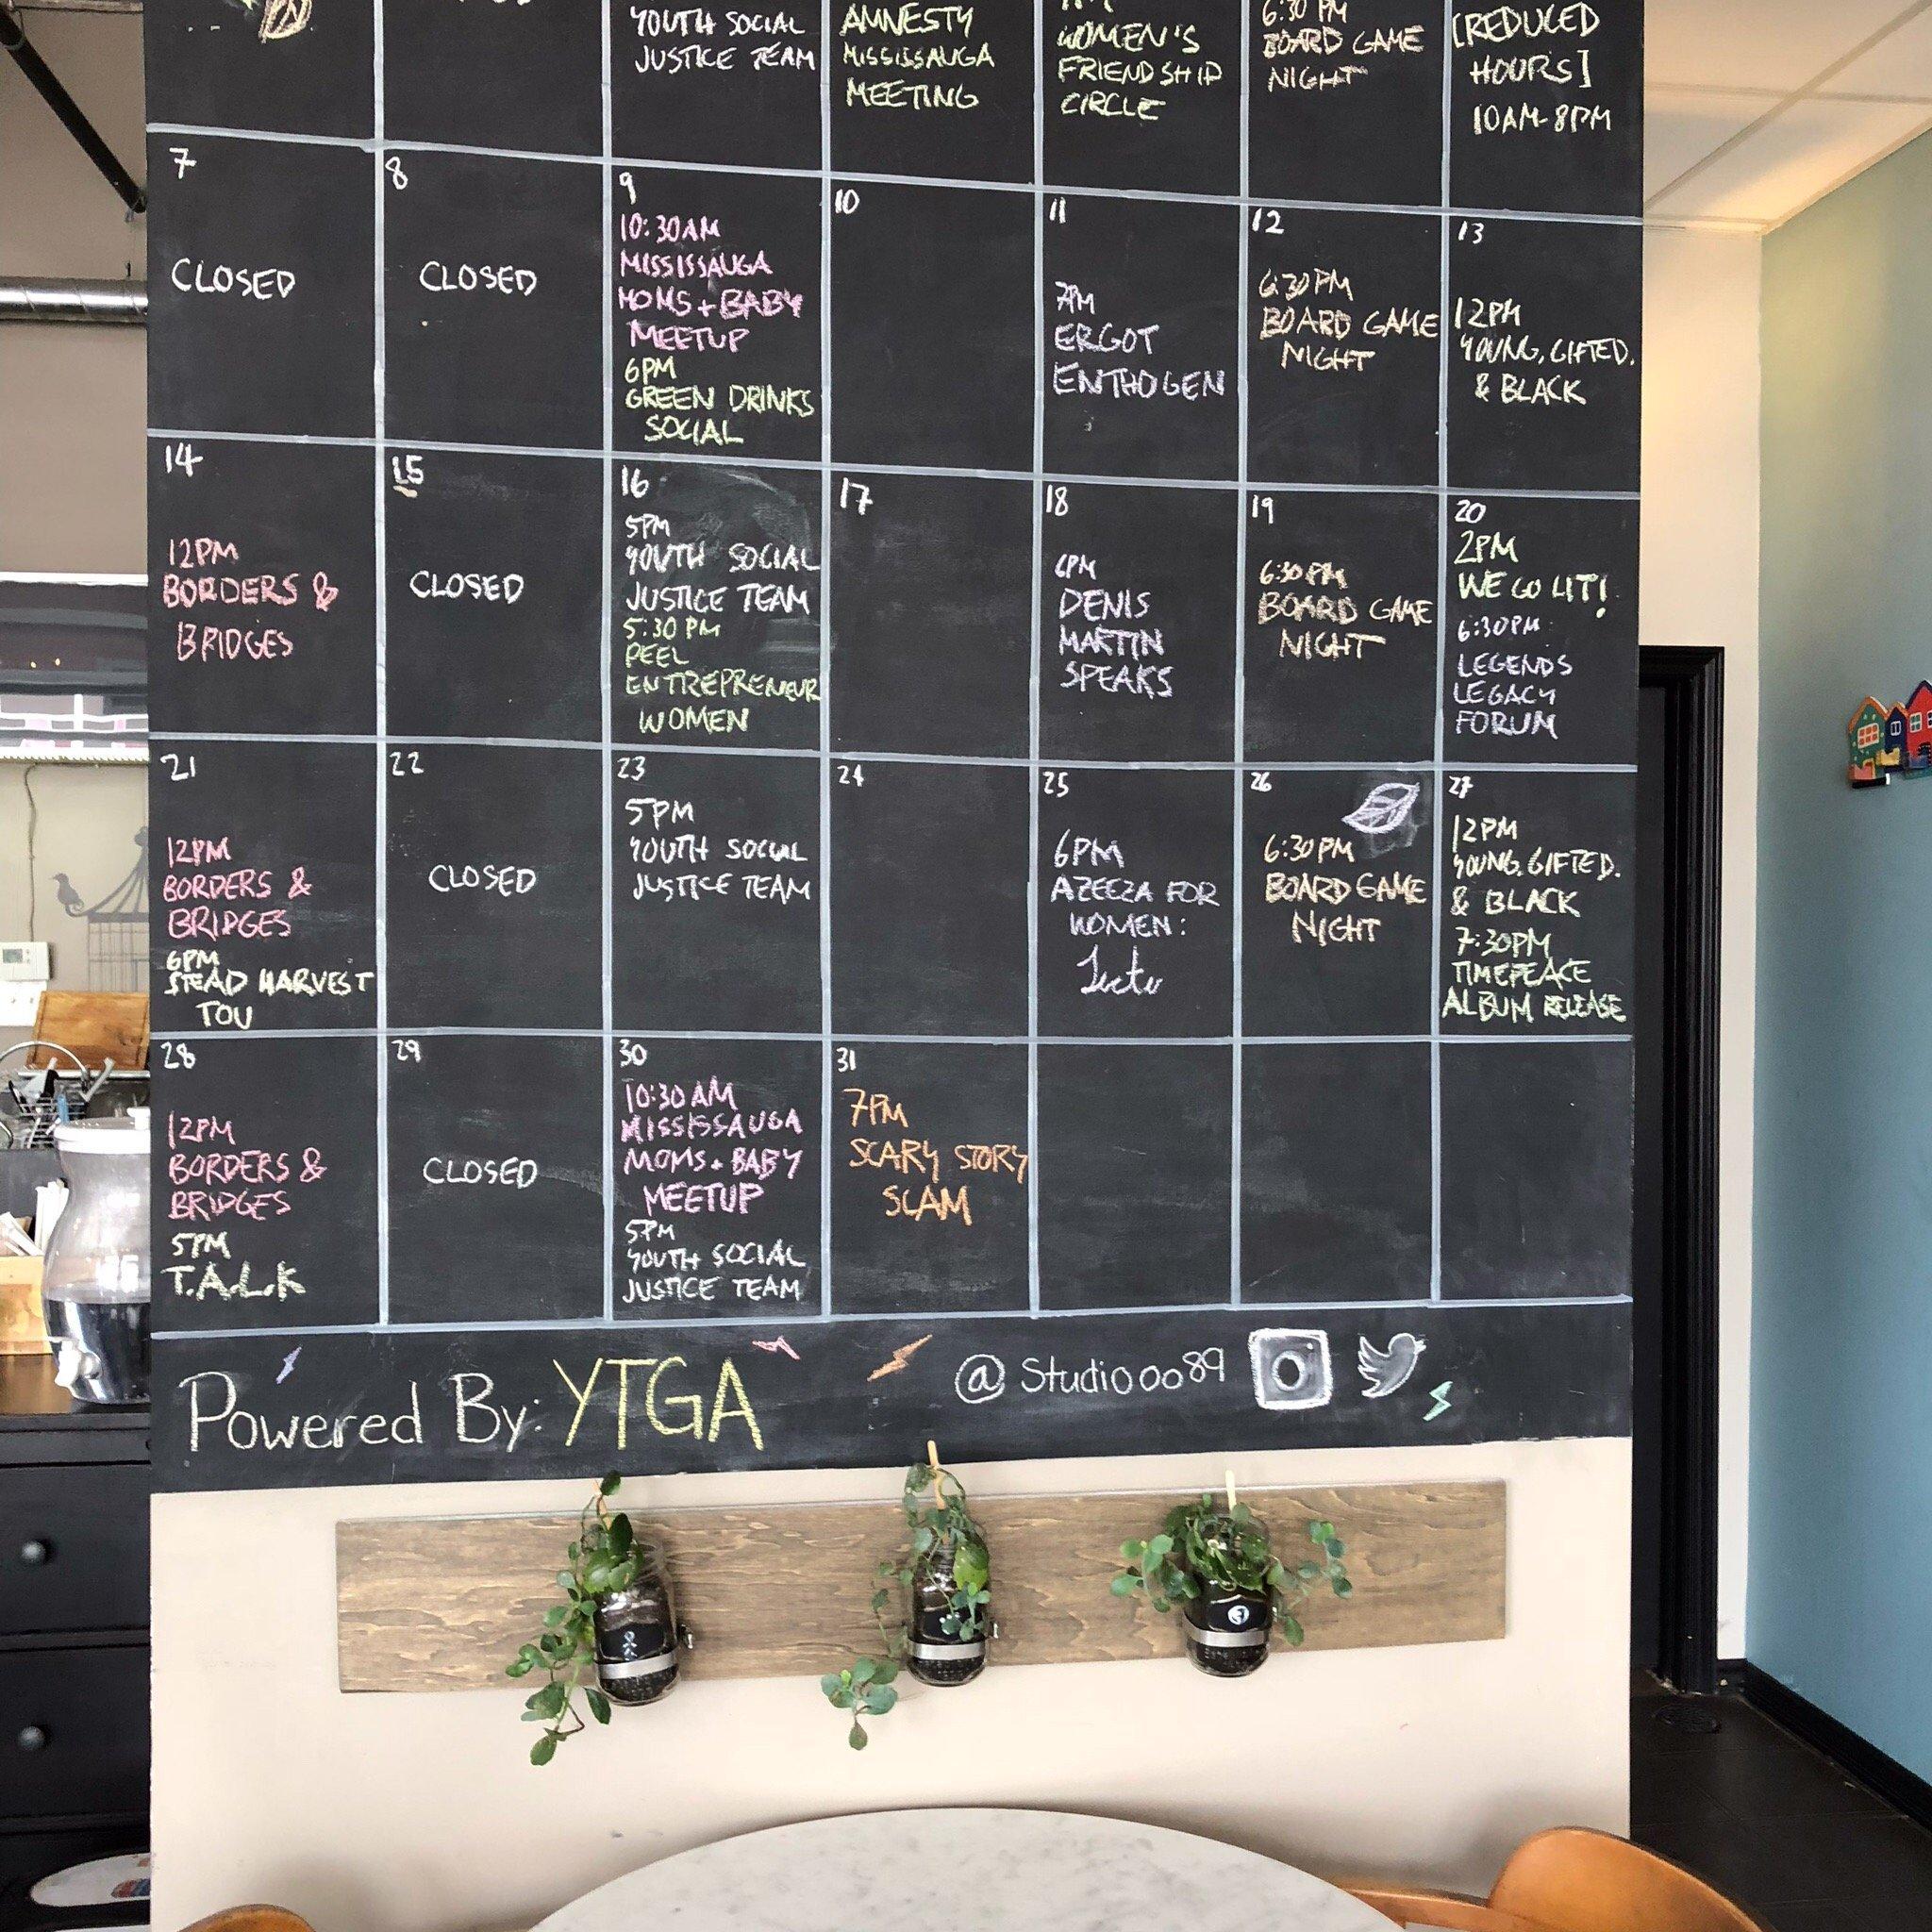 YOUTH SOCIAL
JUSTICE TEAM
AMNESTY
MISSISSAUGA
MEETING
WOMEN'S
FRIENDSHIP
CIRCLE
6:30 PM
BOARD GAME
NIGHT
[REDUCED
HOURS]
10AM-8PM
7
CLOSED
8
CLOSED
9
10:30AM
MISSISSAUGA
MOMS + BABY
MEETUP
6PM
GREEN DRINKS
SOCIAL
10
11
7PM
ERGOT
ENTHOGEN
12
6:30PM
BOARD GAME
NIGHT
13
12PM
YOUNG, GIFTED.
& BLACK
14
12PM
BORDERS &
BRIDGES
15
CLOSED
16
5PM
YOUTH SOCIAL
JUSTICE TEAM
5:30 PM
PEEL
ENTREPRENEUR
WOMEN
17
18
6PM
DENIS
MARTIN
SPEAKS
19
6:30PM
BOARD GAME
NIGHT
20
2PM
WE GO LIT!
6:30PM
LEGENDS
LEGACY
FORUM
21
12PM
BORDERS &
BRIDGES
6PM
STEAD HARVEST
TOU
22
CLOSED
23
5PM
YOUTH SOCIAL
JUSTICE TEAM
24
25
6PM
AZEEZA FOR
WOMEN:
26
6:30PM
BOARD GAME
NIGHT
27
12PM
YOUNG, GIFTED.
& BLACK
7:30PM
TIMEPEACE
ALBUM RELEASE
28
12PM
BORDERS &
BRIDGES
5PM
T.A.L.K
29
CLOSED
30
10:30 AM
MISSISSAUGA
MOMS + BABY
MEETUP
5PM
YOUTH SOCIAL
JUSTICE TEAM
31
7PM
SCARY STORY
SLAM
Powered By: YTGA
@Studioo89